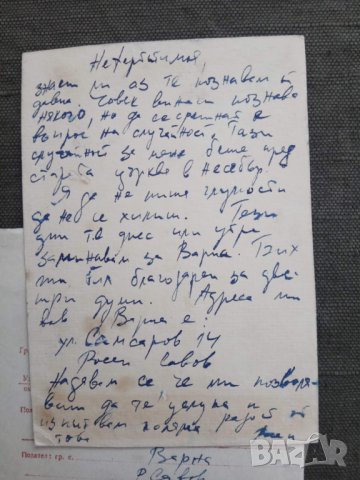 Нефертитмя,
знаеш ли аз те познавам от
давна. Човек винаги познава
някого, но да се срещнат е
въпрос на случайност. Тази
случайност за мене беше пред
старата църква в Несебър.
Я да не пиша глупости
да не се хилиш. Тези
дни т.е. днес или утре
заминавам за Варна. Бих
ти бил благодарен за две
три думи. Адреса ми
във Варна е:
ул. Самсаров 14
Росен Савов
Надявам се че ми позволя-
ваш да те целуна и
изпитвам голяма радост от
това
Гр
У
Пол
Подател: гр. с.
Варна
Р. Савов
bazar.bg